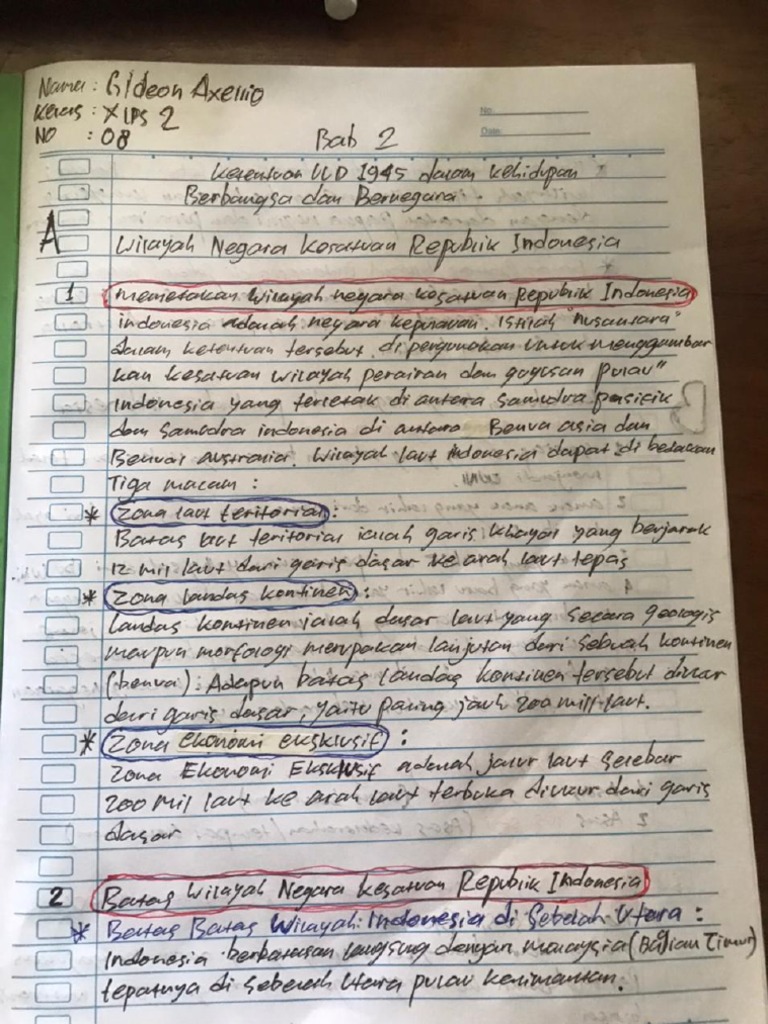 Nama : Gideon Axellio
Kelas : X IPS 2
No : 08
No.
Date:
Bab 2
Ketentuan UUD 1945 dalam kehidupan
Berbangsa dan Bernegara
A
Wilayah Negara Kesatuan Republik Indonesia
1 memetakan wilayah negara kesatuan Republik Indonesia
indonesia adalah negara kepulauan. Istilah "nusantara"
dalam ketentuan tersebut di pergunakan untuk menggambar
kan kesatuan wilayah perairan dan gugusan pulau"
Indonesia yang terletak di antara samudra pasifik
dan samudra indonesia di antara Benua asia dan
Benua australia. Wilayah laut indonesia dapat di bedakan
Tiga macam :
* Zona laut teritorial :
Batas laut teritorial ialah garis khayal yang berjarak
12 mil laut dari garis dasar ke arah laut lepas
* Zona landas kontinen :
Landas kontinen ialah dasar laut yang secara geologis
maupun morfologi merupakan lanjutan dari sebuah kontinen
(benua). Adapun batas landas kontinen tersebut diukur
dari garis dasar, yaitu paling jauh 200 mill laut.
* Zona ekonomi eksklusif :
Zona Ekonomi Eksklusif adalah jalur laut selebar
200 mil laut ke arah laut terbuka diukur dari garis
dasar
2 Batas Wilayah Negara Kesatuan Republik Indonesia
* Batas Batas Wilayah Indonesia di Sebelah Utara :
Indonesia berbatasan langsung dengan malaysia (Bagian Timur)
tepatnya di sebelah Utara pulau kalimantan.